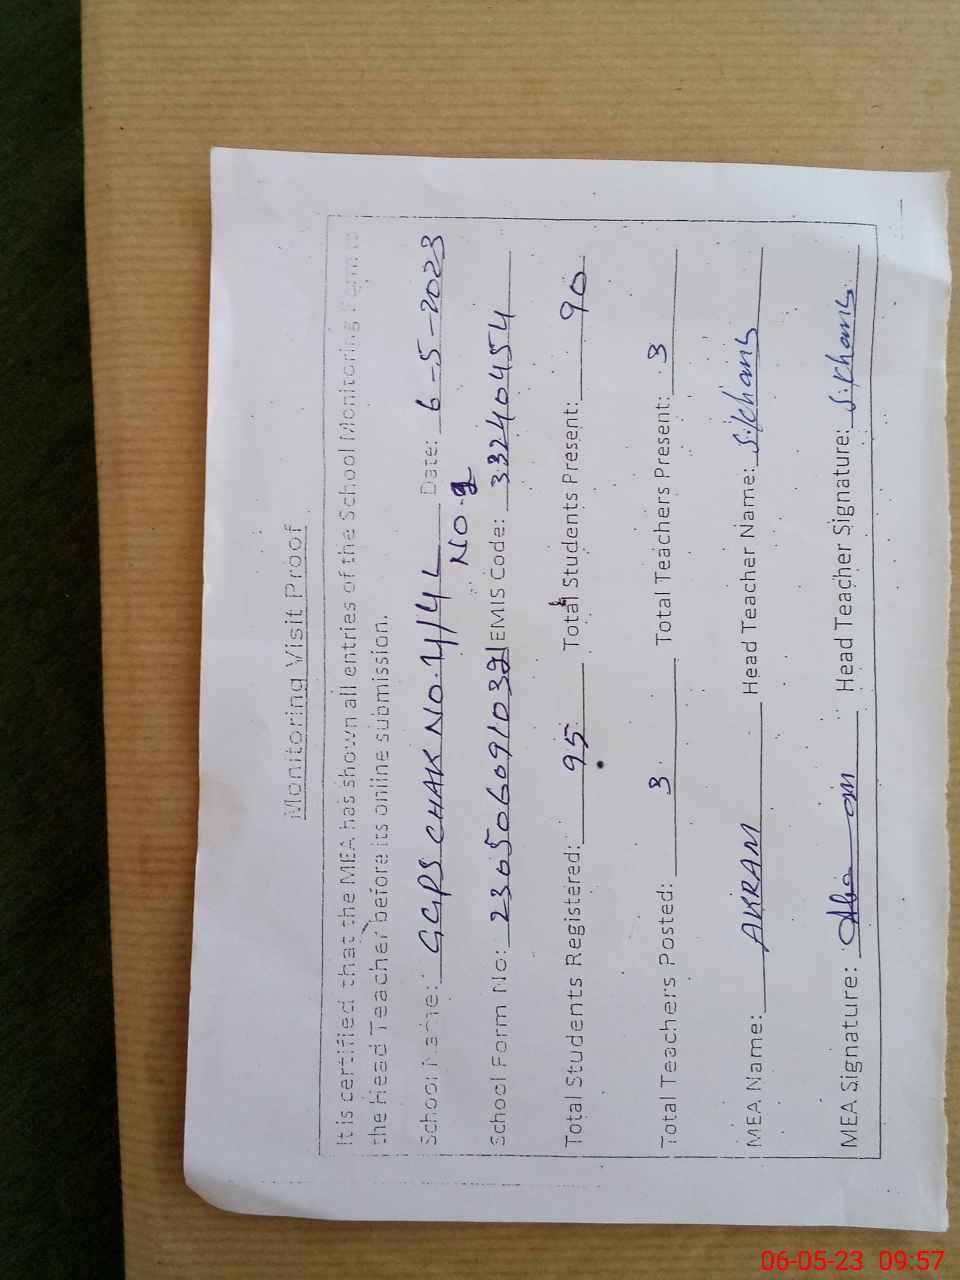 Monitoring Visit Proof
It is certified that the MEA has shown all entries of the School Monitoring Form to
the Head Teacher before its online submission.
School Name: GGPS CHAK NO.14/4L Date: 6-5-2023
NO.2
School Form No: EMIS Code: 33240454
Total Students Registered: 95 Total Students Present: 90
Total Teachers Posted: 3 Total Teachers Present: 3
MEA Name: AKRAM Head Teacher Name: S.Khans
MEA Signature: Head Teacher Signature: S.Khans
06-05-23 09:57